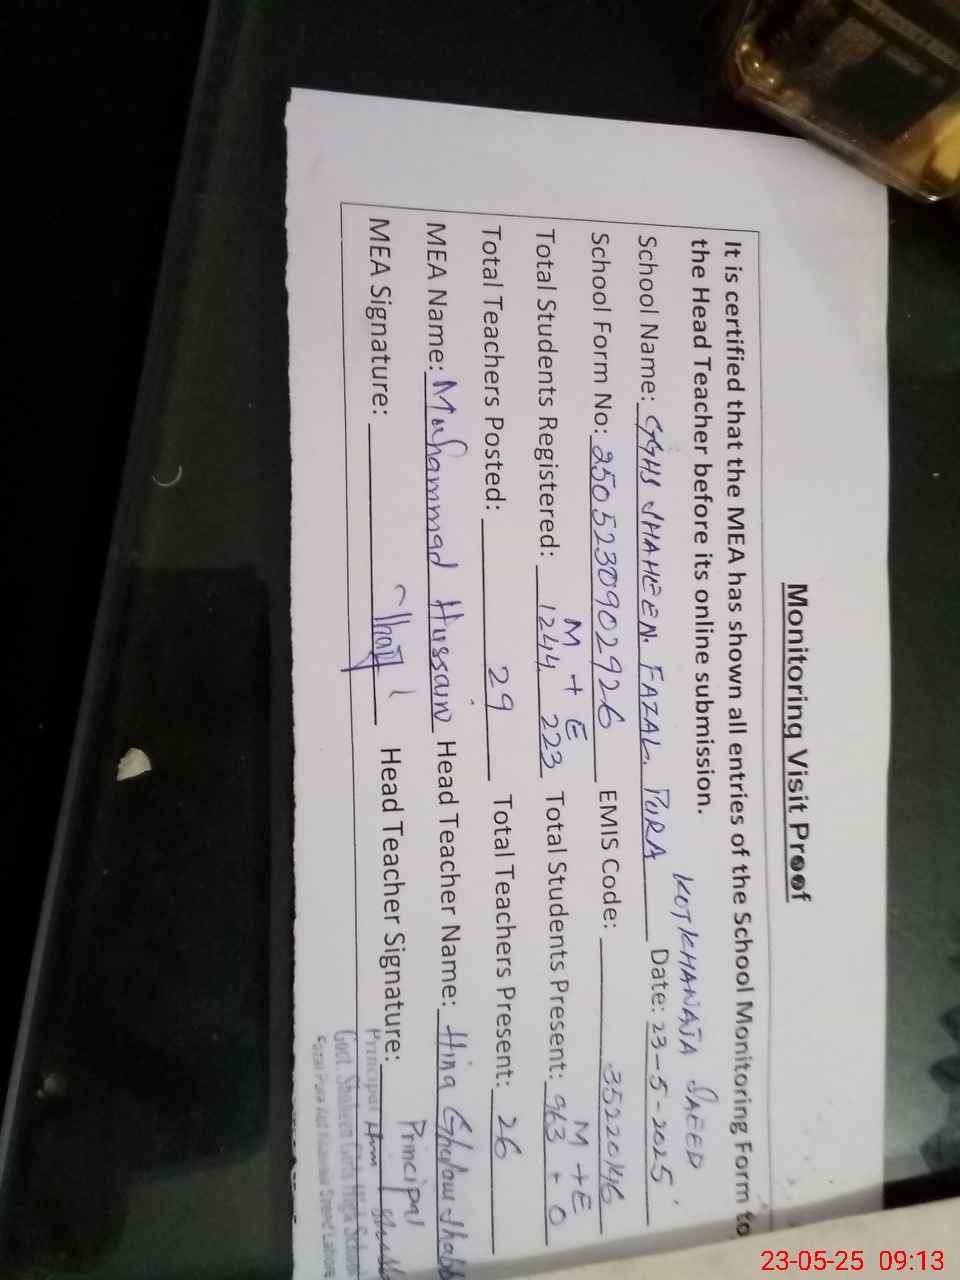 Monitoring Visit Proof
It is certified that the MEA has shown all entries of the School Monitoring Form to
the Head Teacher before its online submission.
KOT KHAWAJA SAEED
School Name: GGHS SHAHEEN FAZAL PURA Date: 23-5-2025
School Form No: 2505230902926 EMIS Code: 35220146
M + E M + E
Total Students Registered: 1244 223 Total Students Present: 963 + 0
Total Teachers Posted: 29 Total Teachers Present: 26
MEA Name: Muhammad Hussain Head Teacher Name: Hina Ghulam
MEA Signature: Head Teacher Signature: Principal
Principal
Govt. Shaheen Girls High School
23-05-25 09:13